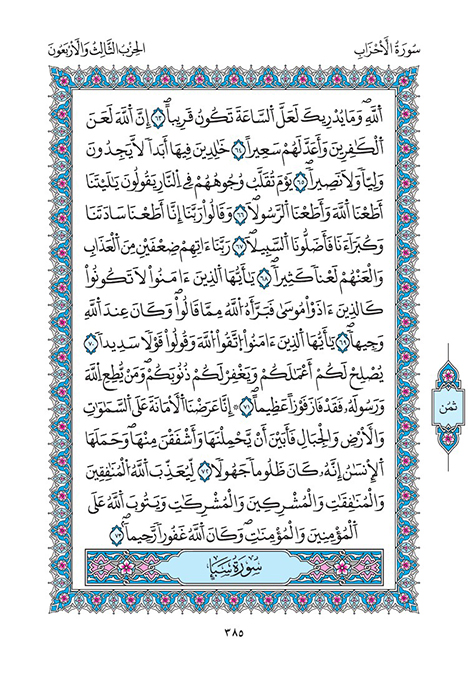 سُورَةُ الْأَحْزَابِ
الحِزْبُ الثَّالِثُ وَالْأَرْبَعُونَ
اَ۬للَّهِۖ وَمَا يُدْرِيكَ لَعَلَّ اَ۬لسَّاعَةَ تَكُونُ قَرِيباًۖ ٦٣ إِنَّ اَ۬للَّهَ لَعَنَ
اَ۬لْكَٰفِرِينَ وَأَعَدَّ لَهُمْ سَعِيراً ٦٤ خَٰلِدِينَ فِيهَا أَبَداٗ لَّا يَجِدُونَ
وَلِيّاٗ وَلَا نَصِيراٗۖ ٦٥ يَوْمَ تُقَلَّبُ وُجُوهُهُمْ فِے اِ۬لنَّارِ يَقُولُونَ يَٰلَيْتَنَا
أَطَعْنَا اَ۬للَّهَ وَأَطَعْنَا اَ۬لرَّسُولَاۖ ٦٦ وَقَالُواْ رَبَّنَا إِنَّا أَطَعْنَا سَادَتَنَا
وَكُبَرَآءَنَا فَأَضَلُّونَا اَ۬لسَّبِيلَاۖ ٦٧ رَبَّنَا ءَاتِهِمْ ضِعْفَيْنِ مِنَ اَ۬لْعَذَابِ
وَالْعَنْهُمْ لَعْناٗ كَثِيراٗۖ ٦٨ يَٰأَيُّهَا اَ۬لذِينَ ءَامَنُواْ لَا تَكُونُواْ
كَالذِينَ ءَاذَوْاْ مُوسَىٰ فَبَرَّأَهُ اُ۬للَّهُ مِمَّا قَالُواْۖ وَكَانَ عِندَ اَ۬للَّهِ
وَجِيهاٗۖ ٦٩ يَٰأَيُّهَا اَ۬لذِينَ ءَامَنُواْ اُ۪تَّقُواْ اُ۬للَّهَ وَقُولُواْ قَوْلاٗ سَدِيداٗ ٧٠
يُصْلِحْ لَكُمْ أَعْمَٰلَكُمْ وَيَغْفِرْ لَكُمْ ذُنُوبَكُمْۖ وَمَنْ يُّطِعِ اِ۬للَّهَ
وَرَسُولَهُۥ فَقَدْ فَازَ فَوْزاً عَظِيماًۖ ٧١ ۞ إِنَّا عَرَضْنَا اَ۬لْأَمَانَةَ عَلَى اَ۬لسَّمَٰوَٰتِ
وَالْأَرْضِ وَالْجِبَالِ فَأَبَيْنَ أَنْ يَّحْمِلْنَهَا وَأَشْفَقْنَ مِنْهَاۖ وَحَمَلَهَا
اَ۬لْإِنسَٰنُ إِنَّهُۥ كَانَ ظَلُوماٗ جَهُولاٗ ٧٢ لِّيُعَذِّبَ اَ۬للَّهُ اُ۬لْمُنَٰفِقِينَ
وَالْمُنَٰفِقَٰتِ وَالْمُشْرِكِينَ وَالْمُشْرِكَٰتِ وَيَتُوبَ اَ۬للَّهُ عَلَى
اَ۬لْمُؤْمِنِينَ وَالْمُؤْمِنَٰتِۖ وَكَانَ اَ۬للَّهُ غَفُوراٗ رَّحِيماٗۖ ٧٣
سُورَةُ سَبَإٍ
ثُمُن
٣٨٥